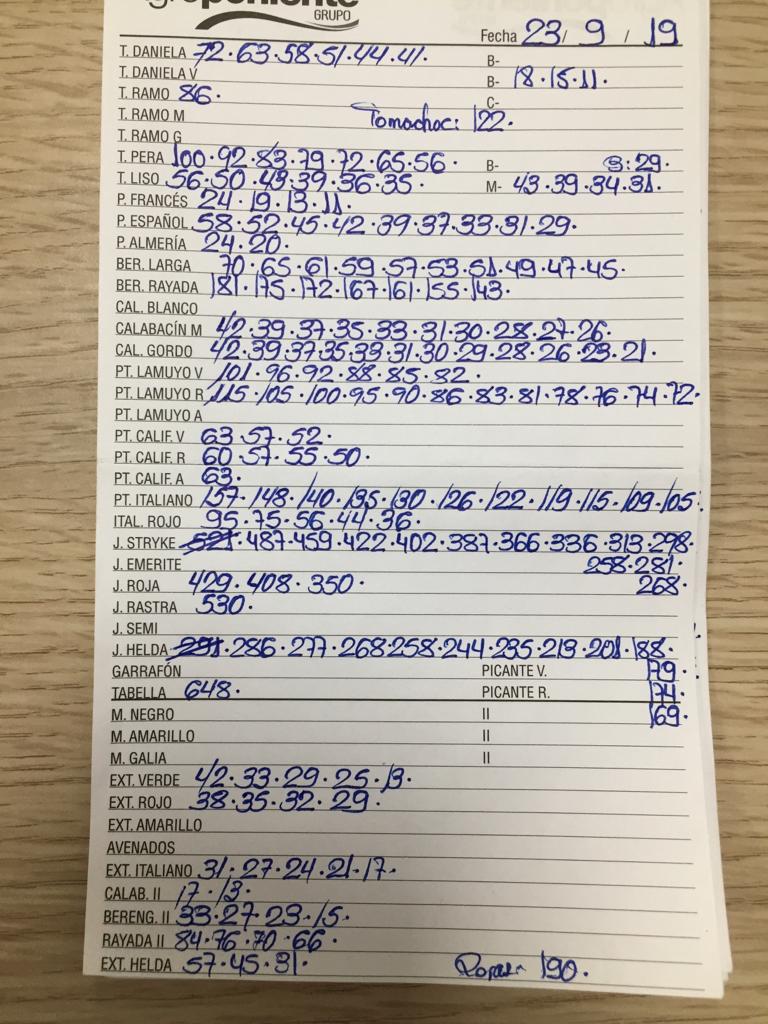 agroponiente
GRUPO
Fecha 23/ 9 / 19
T. DANIELA 72·63·58·51·44·41· B-
T. DANIELA V B- 18·15·11·
T. RAMO 86· C-
T. RAMO M Tomachoc: 122·
T. RAMO G
T. PERA 100·92·83·79·72·65·56· B- 3:29·
T. LISO 56·50·43·39·36·35· M- 43·39·34·31·
P. FRANCÉS 24·19·13·11·
P. ESPAÑOL 58·52·45·42·39·37·33·31·29·
P. ALMERÍA 24·20·
BER. LARGA 70·65·61·59·57·53·51·49·47·45·
BER. RAYADA 181·175·172·167·161·155·143·
CAL. BLANCO
CALABACÍN M 42·39·37·35·33·31·30·28·27·26·
CAL. GORDO 42·39·37·35·33·31·30·29·28·26·23·21·
PT. LAMUYO V 101·96·92·88·85·82·
PT. LAMUYO R 115·105·100·95·90·86·83·81·78·76·74·72·
PT. LAMUYO A
PT. CALIF. V 63·57·52·
PT. CALIF. R 60·57·55·50·
PT. CALIF. A 63·
PT. ITALIANO 157·148·140·135·130·126·122·119·115·109·105·
ITAL. ROJO 95·75·56·44·36·
J. STRYKE 521·487·459·422·402·387·366·336·313·298·
J. EMERITE 258·281·
J. ROJA 429·408·350· 268·
J. RASTRA 530·
J. SEMI
J. HELDA 291·286·277·268·258·244·235·213·201·188·
GARRAFÓN PICANTE V. 179·
TABELLA 648· PICANTE R. 174·
M. NEGRO II 169·
M. AMARILLO II
M. GALIA II
EXT. VERDE 42·33·29·25·13·
EXT. ROJO 38·35·32·29·
EXT. AMARILLO
AVENADOS
EXT. ITALIANO 31·27·24·21·17·
CALAB. II 17·13·
BERENG. II 33·27·23·15·
RAYADA II 84·76·70·66·
EXT. HELDA 57·45·31· 190·